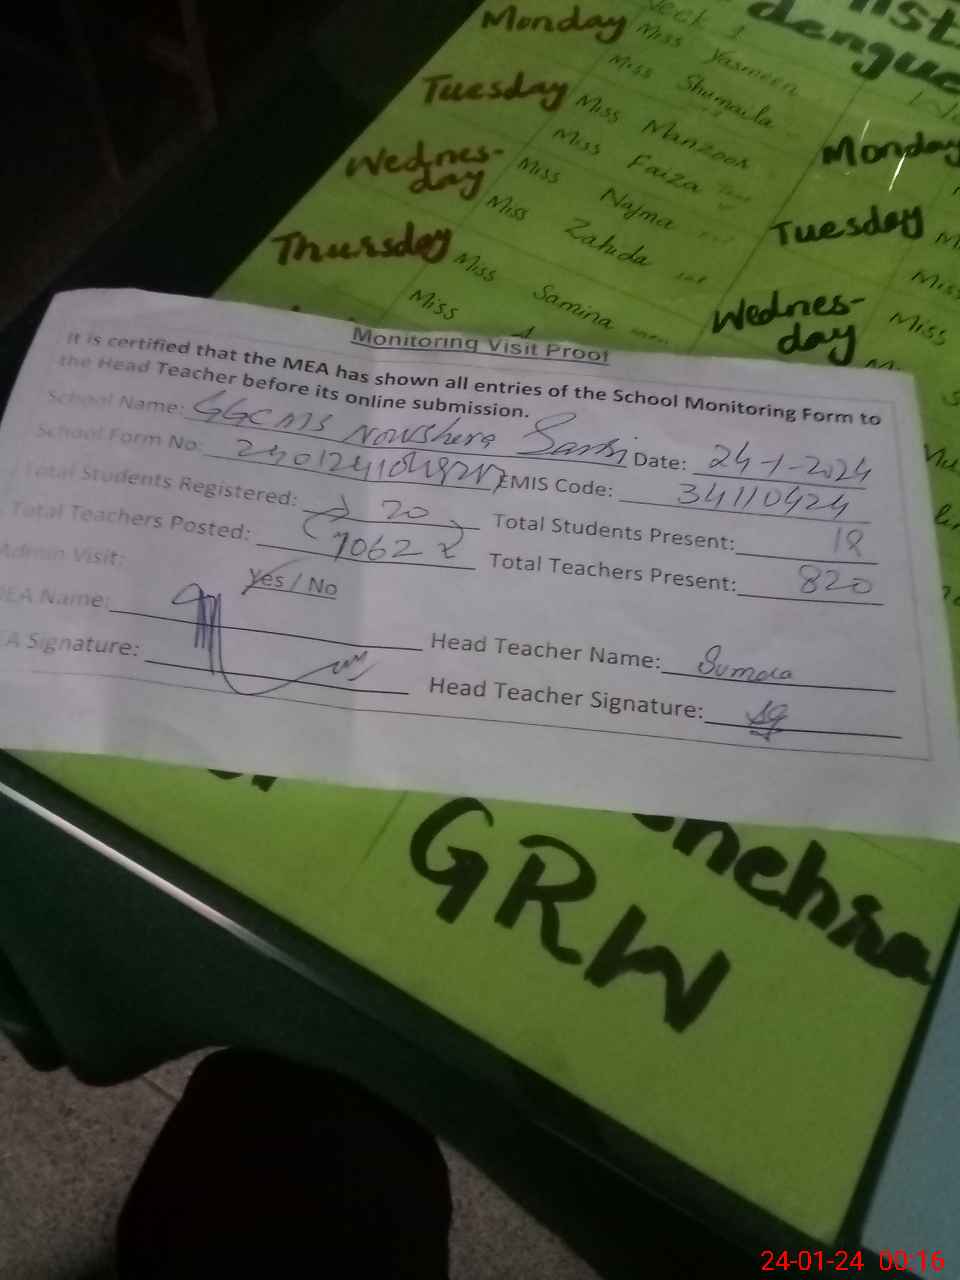 Week 1
Monday Miss Yasmeen
Miss Shumaila
Tuesday Miss Manzoor
Miss Faiza
Wednes-
day
Miss Najma
Miss Zahida
Thursday Miss Samina
Miss
dengue
Monday
Tuesday
Miss
Wednes-
day
Miss
Monitoring Visit Proof
It is certified that the MEA has shown all entries of the School Monitoring Form to
the Head Teacher before its online submission.
School Name: GGCMS Nowshera Sansi Date: 24-1-2024
School Form No: EMIS Code: 34110424
Total Students Registered: 20 Total Students Present: 18
Total Teachers Posted: 1062 Total Teachers Present: 820
Admin Visit: Yes / No
MEA Name: Head Teacher Name: Sumera
MEA Signature: Head Teacher Signature:
GRW
24-01-24 00:16